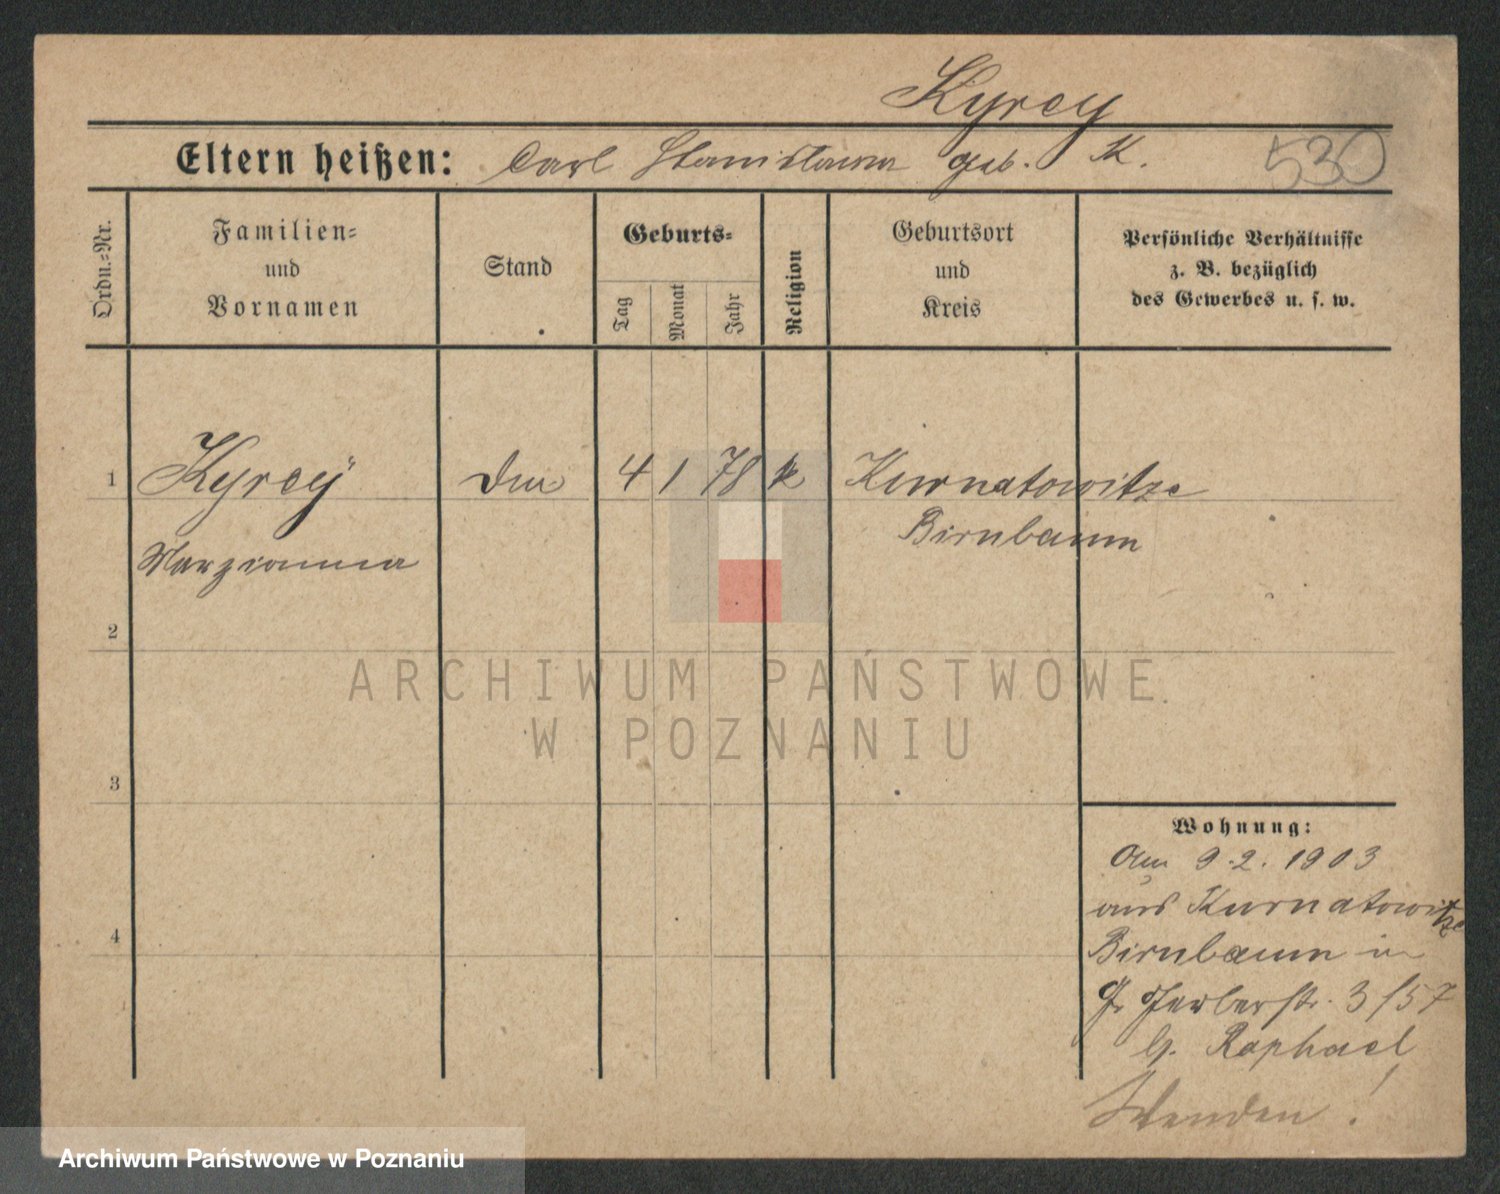 Kyrcy
Eltern heißen: Carl Stanislawa geb. K. 530
Ordn.-Nr.
Familien-
und
Vornamen
Stand
Geburts-
Tag
Monat
Jahr
Religion
Geburtsort
und
Kreis
Persönliche Verhältnisse
z. B. bezüglich
des Gewerbes u. s. w.
1 Kyrcy 4 1 78 k Kurnatowitze
Birnbaum
Marzianna
2
ARCHIWUM PAŃSTWOWE
W POZNANIU
3
Wohnung:
Am 9.2.1903
aus Kurnatowitze
4
Birnbaum in
Gr Gerberstr. 3/57
b. Raphael
Wenden!
Archiwum Państwowe w Poznaniu